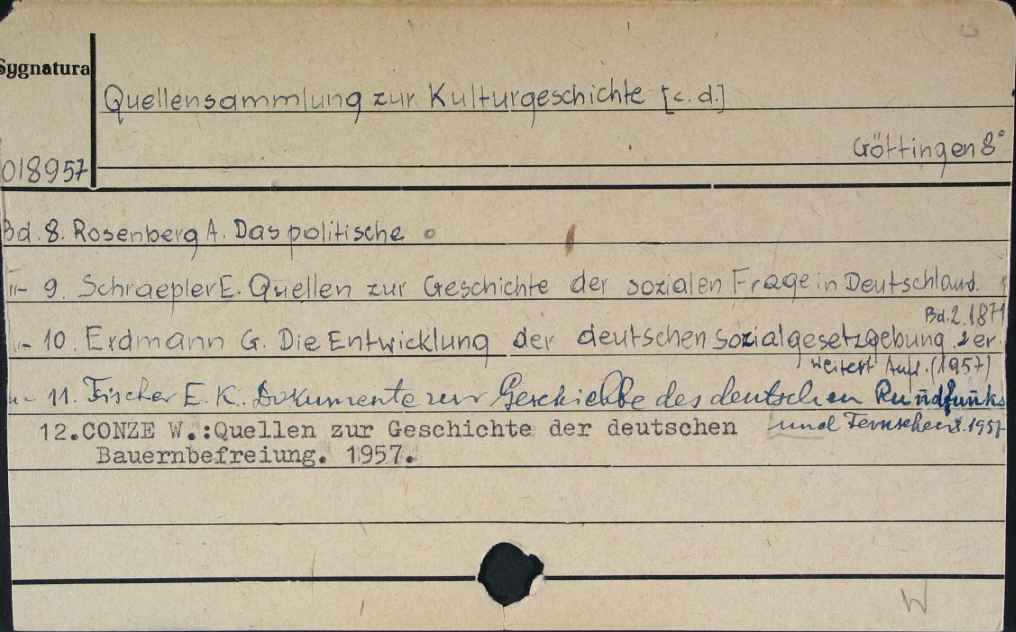 Sygnatura
Quellensammlung zur Kulturgeschichte [c.d.]
Göttingen 8°
018957
Bd. 8. Rosenberg A. Das politische
-"- 9. Schraepler E. Quellen zur Geschichte der sozialen Frage in Deutschland.
Bd. 2. 1871
-"- 10. Erdmann G. Die Entwicklung der deutschen Sozialgesetzgebung. 2 er.
weitert Aufl. (1957)
-"- 11. Fischer E. K. Dokumente zur Geschichte des deutschen Rundfunks
und Fernsehens. 1957
12. CONZE W.: Quellen zur Geschichte der deutschen
Bauernbefreiung. 1957.
W